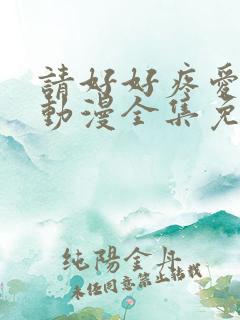 請好好疼愛
動漫全集免
純陽金丹
未經同意禁止轉載